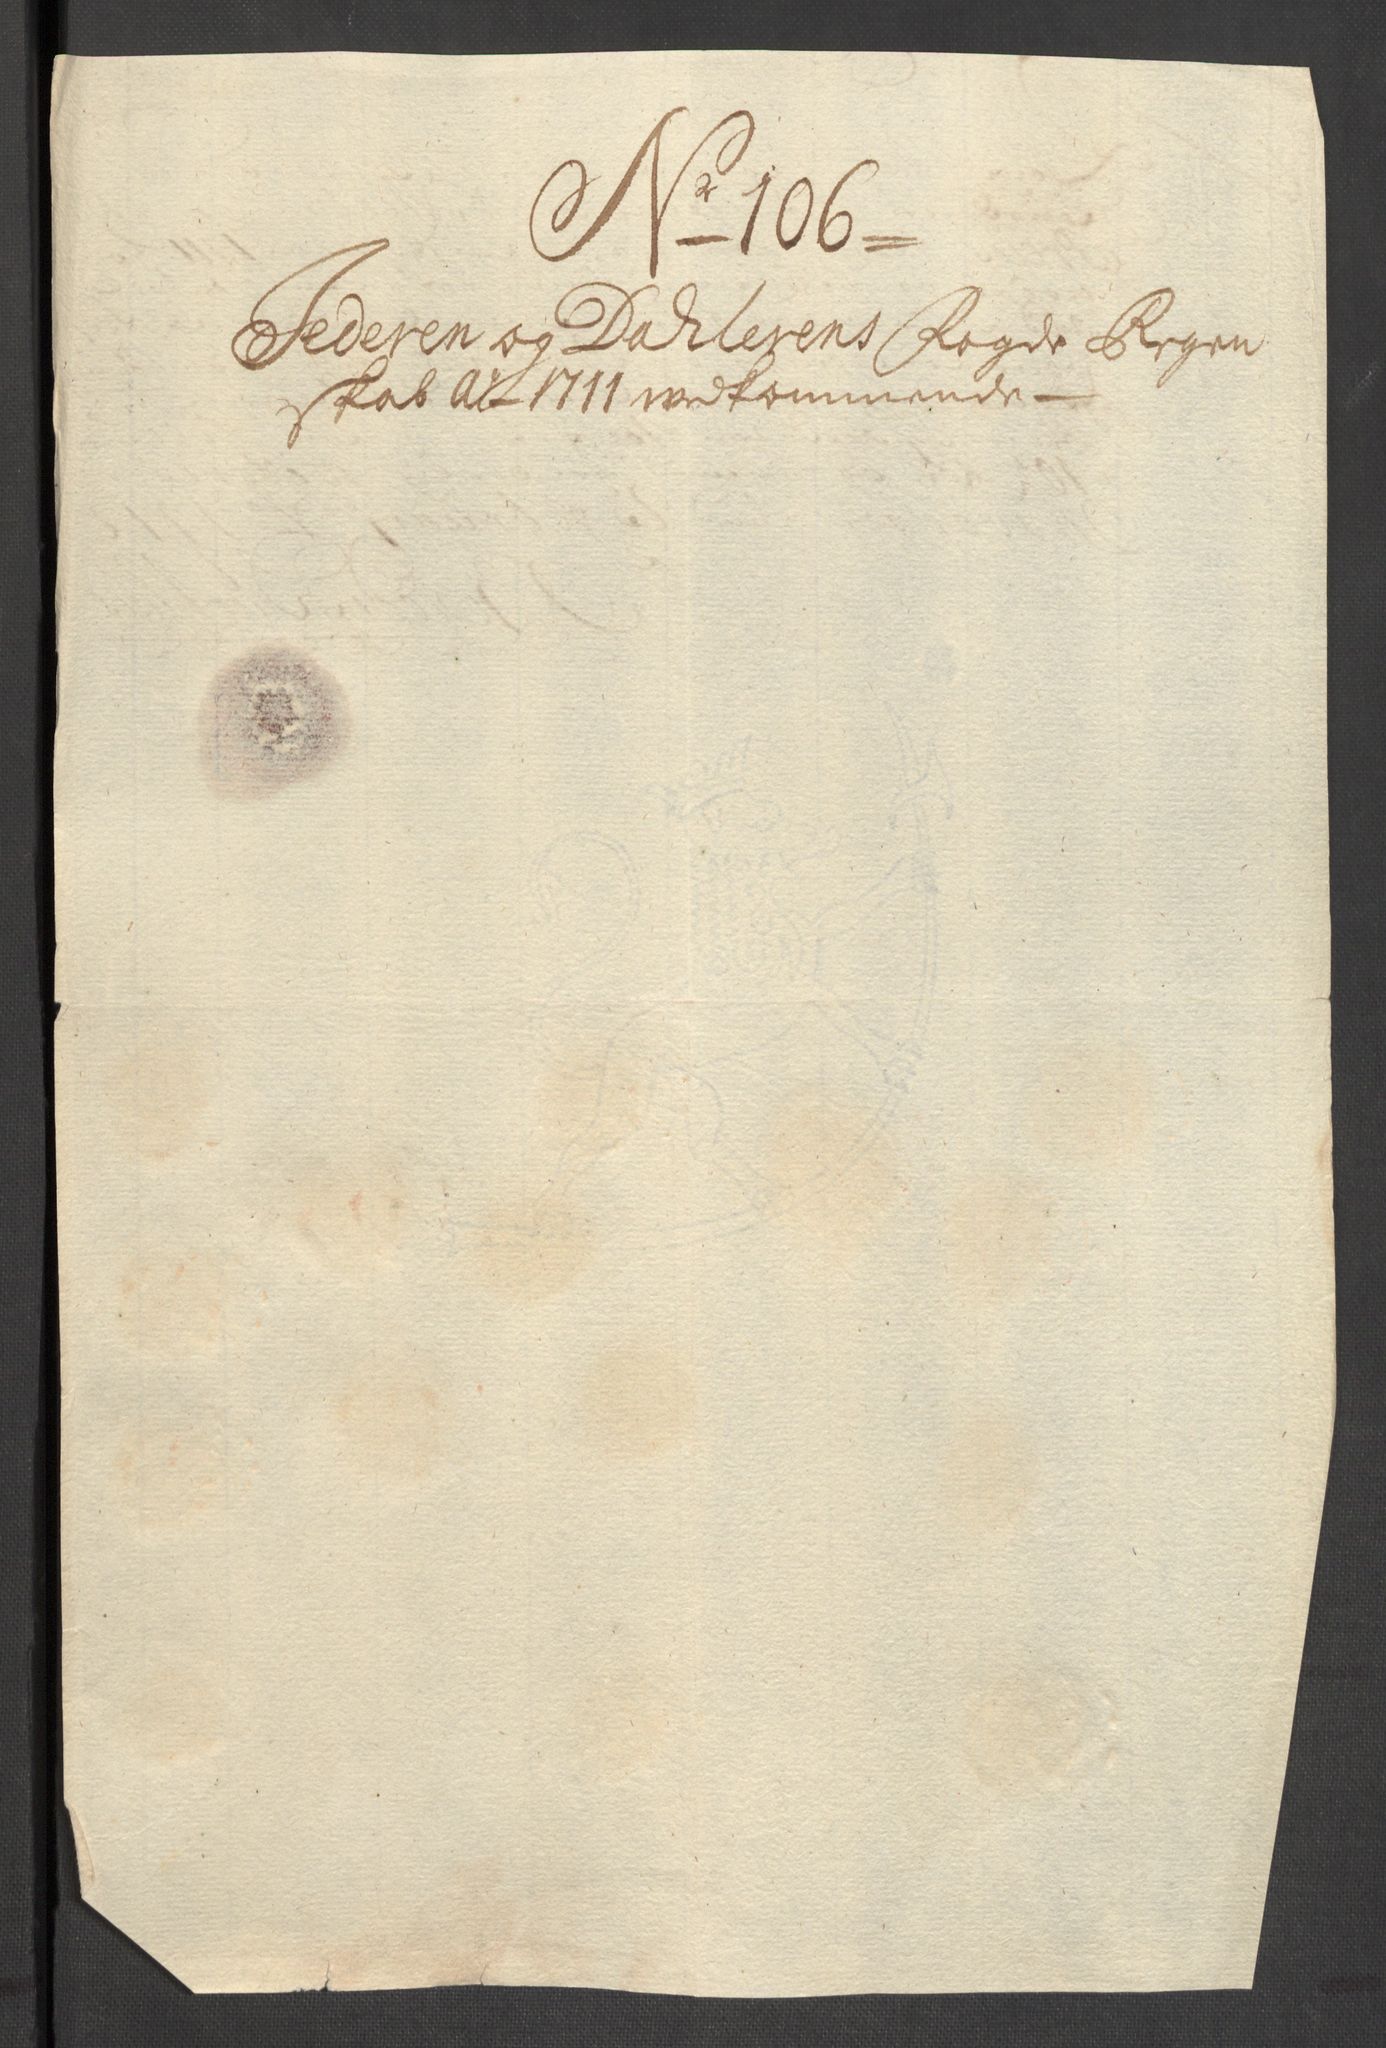 No 106=
Jederen og Dahlerens Fogde Regen
skab Ao 1711 vedkommende